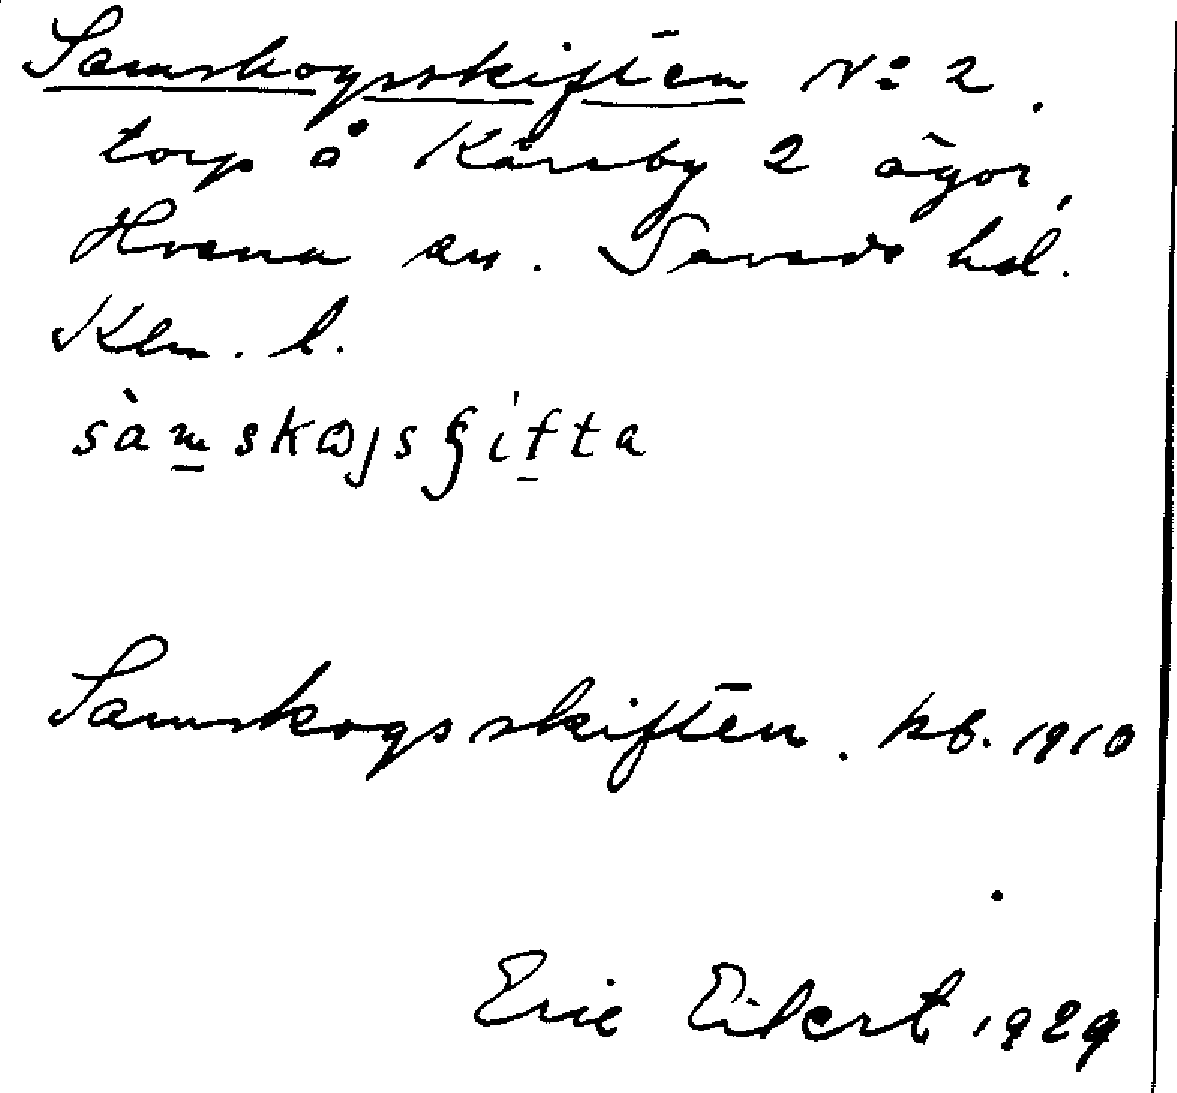 Samskogsskiften No 2.
torp å Kårsby 2 ägor,
Hvena sn. Sevede hd.
Klm. l.
sàmskωjsʃifta
Samskogsskiften. kb. 1910
Eric Eilert 1929